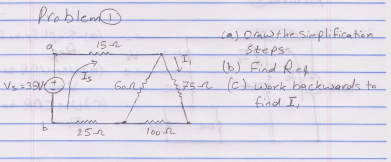 Problem ①
a
15-Ω
Is
I₁
Vs=35V
60Ω
75-Ω
b
25-Ω
100-Ω
(a) Draw the Simplification
Steps
(b) Find Req
(c) Work backwards to
find I₁